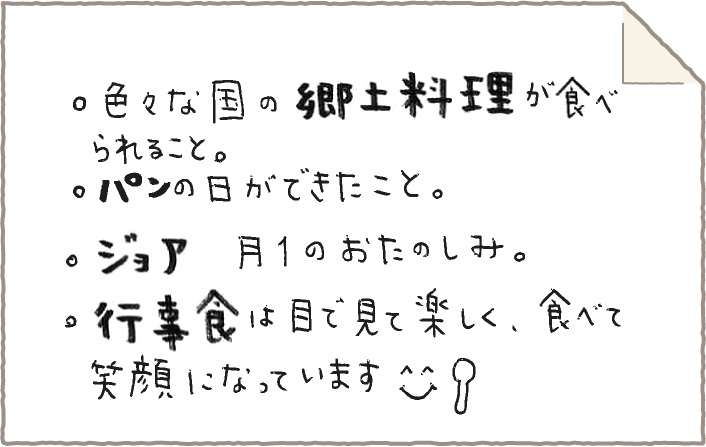 。色々な国の郷土料理が食べ
られること。
。パンの日ができたこと。
。ジョア 月1のおたのしみ。
。行事食は目で見て楽しく、食べて
笑顔になっています